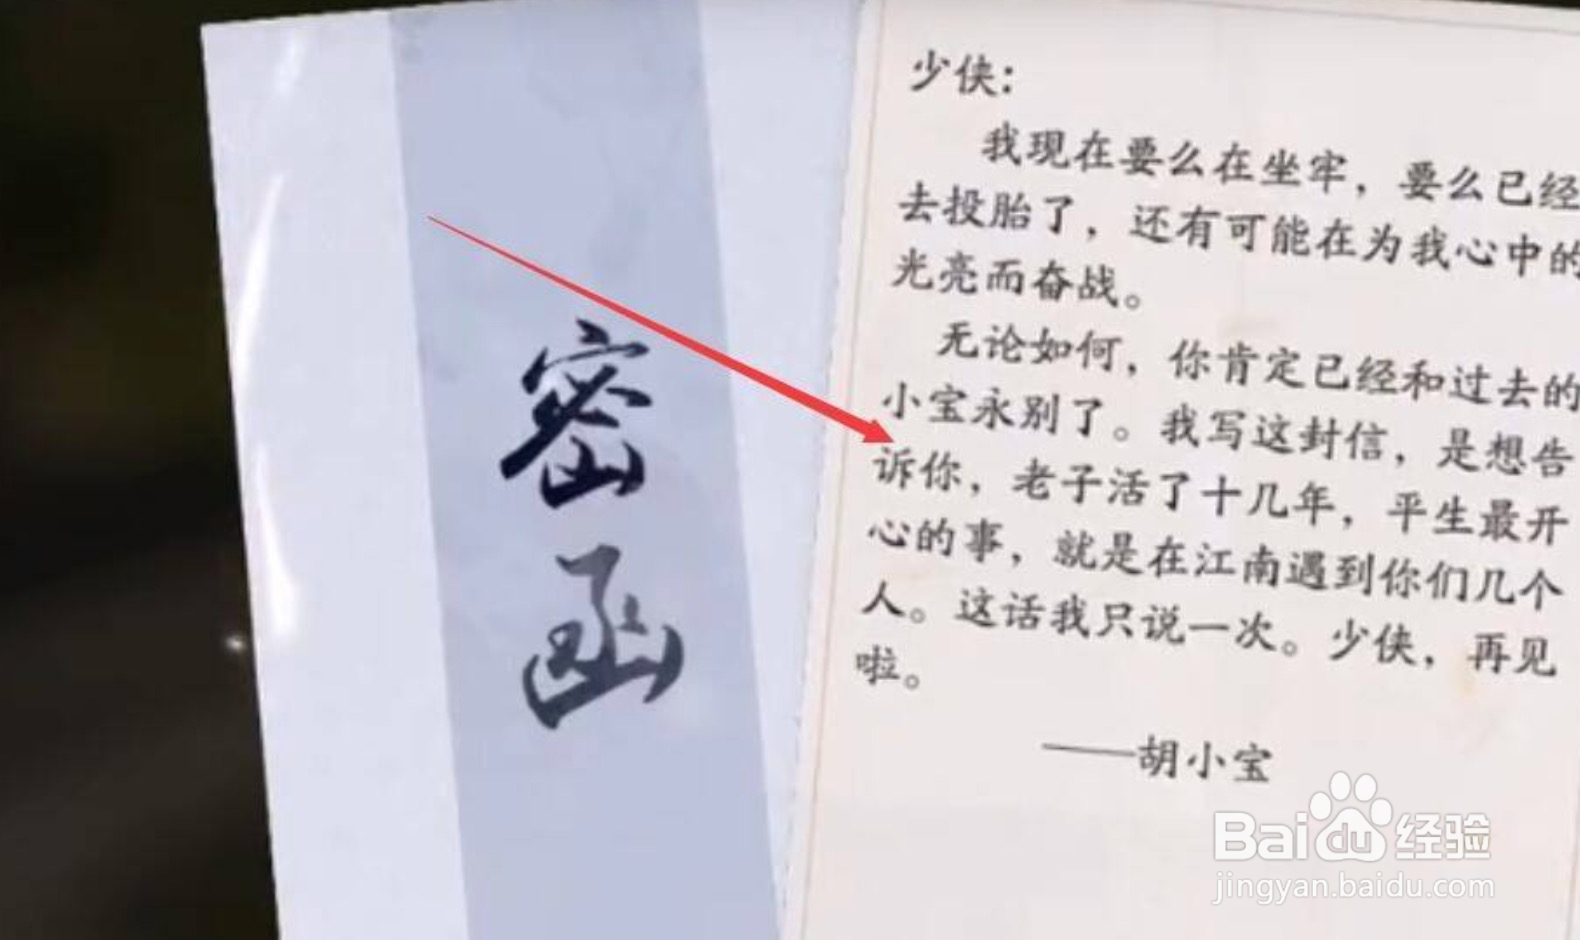 密函
少侠：
我现在要么在坐牢，要么已经
去投胎了，还有可能在为我心中的
光亮而奋战。
无论如何，你肯定已经和过去的
小宝永别了。我写这封信，是想告
诉你，老子活了十几年，平生最开
心的事，就是在江南遇到你们几个
人。这话我只说一次。少侠，再见
啦。
——胡小宝
Baidu经验
jingyan.baidu.com